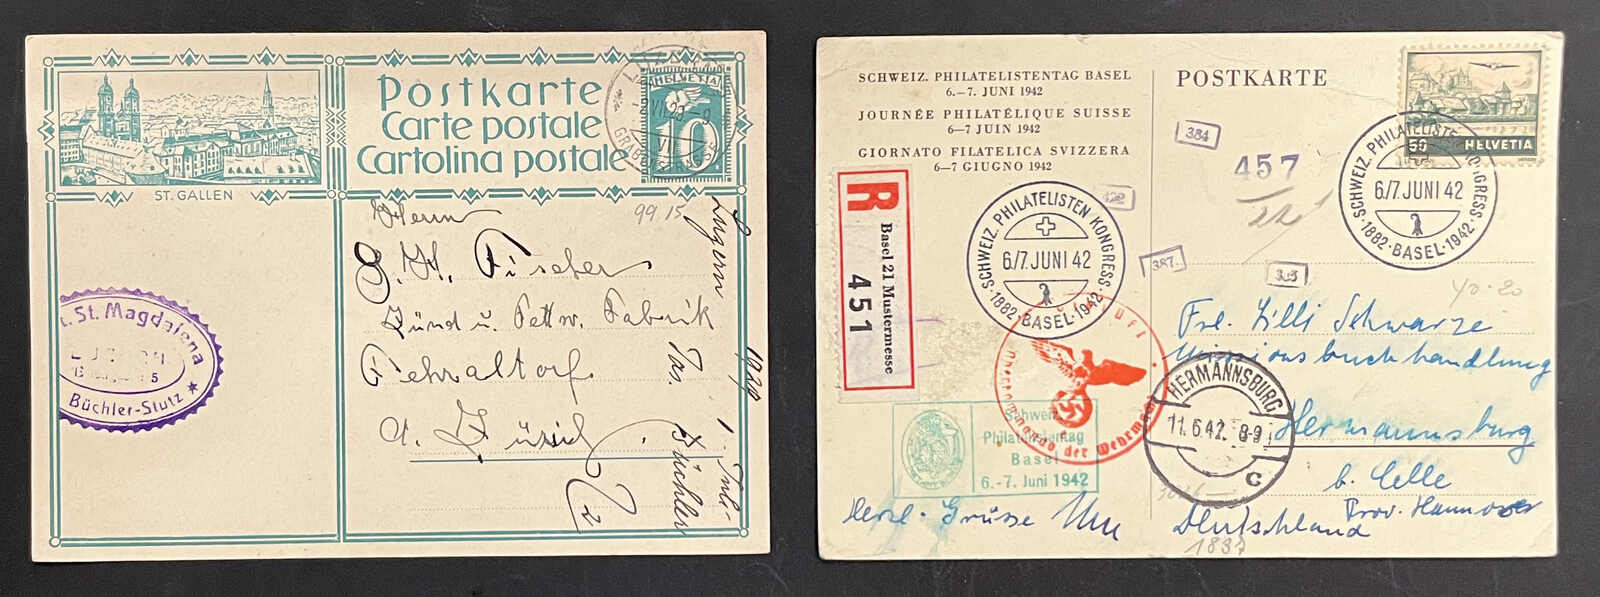 Postkarte
Carte postale
Cartolina postale
HELVETIA
10
ST. GALLEN
99.15
Herrn
Fischer
Zünd u. Fettw. Fabrik
Fehraltorf
Zürich
Luzern
1929
1. Juli
Büchler
St. Magdalena
Büchler-Stutz
SCHWEIZ. PHILATELISTENTAG BASEL
6.–7. JUNI 1942
JOURNÉE PHILATÉLIQUE SUISSE
6–7 JUIN 1942
GIORNATO FILATELICA SVIZZERA
6–7 GIUGNO 1942
POSTKARTE
50 HELVETIA
384
457
387.
R
Basel 21 Mustermesse
451
SCHWEIZ. PHILATELISTEN KONGRESS
6/7. JUNI 42
1882 · BASEL · 1942
SCHWEIZ. PHILATELISTEN KONGRESS
6/7. JUNI 42
1882 · BASEL · 1942
40.20
Frl. Zilli Schwarze
Missionsbuchhandlung
Hermannsburg
b. Celle
Prov. Hannover
Deutschland
HERMANNSBURG
11.6.42. 8-9
c
der Wehrmacht
Schweiz.
Philatelistentag
Basel
6.-7. Juni 1942
Grüsse
1837